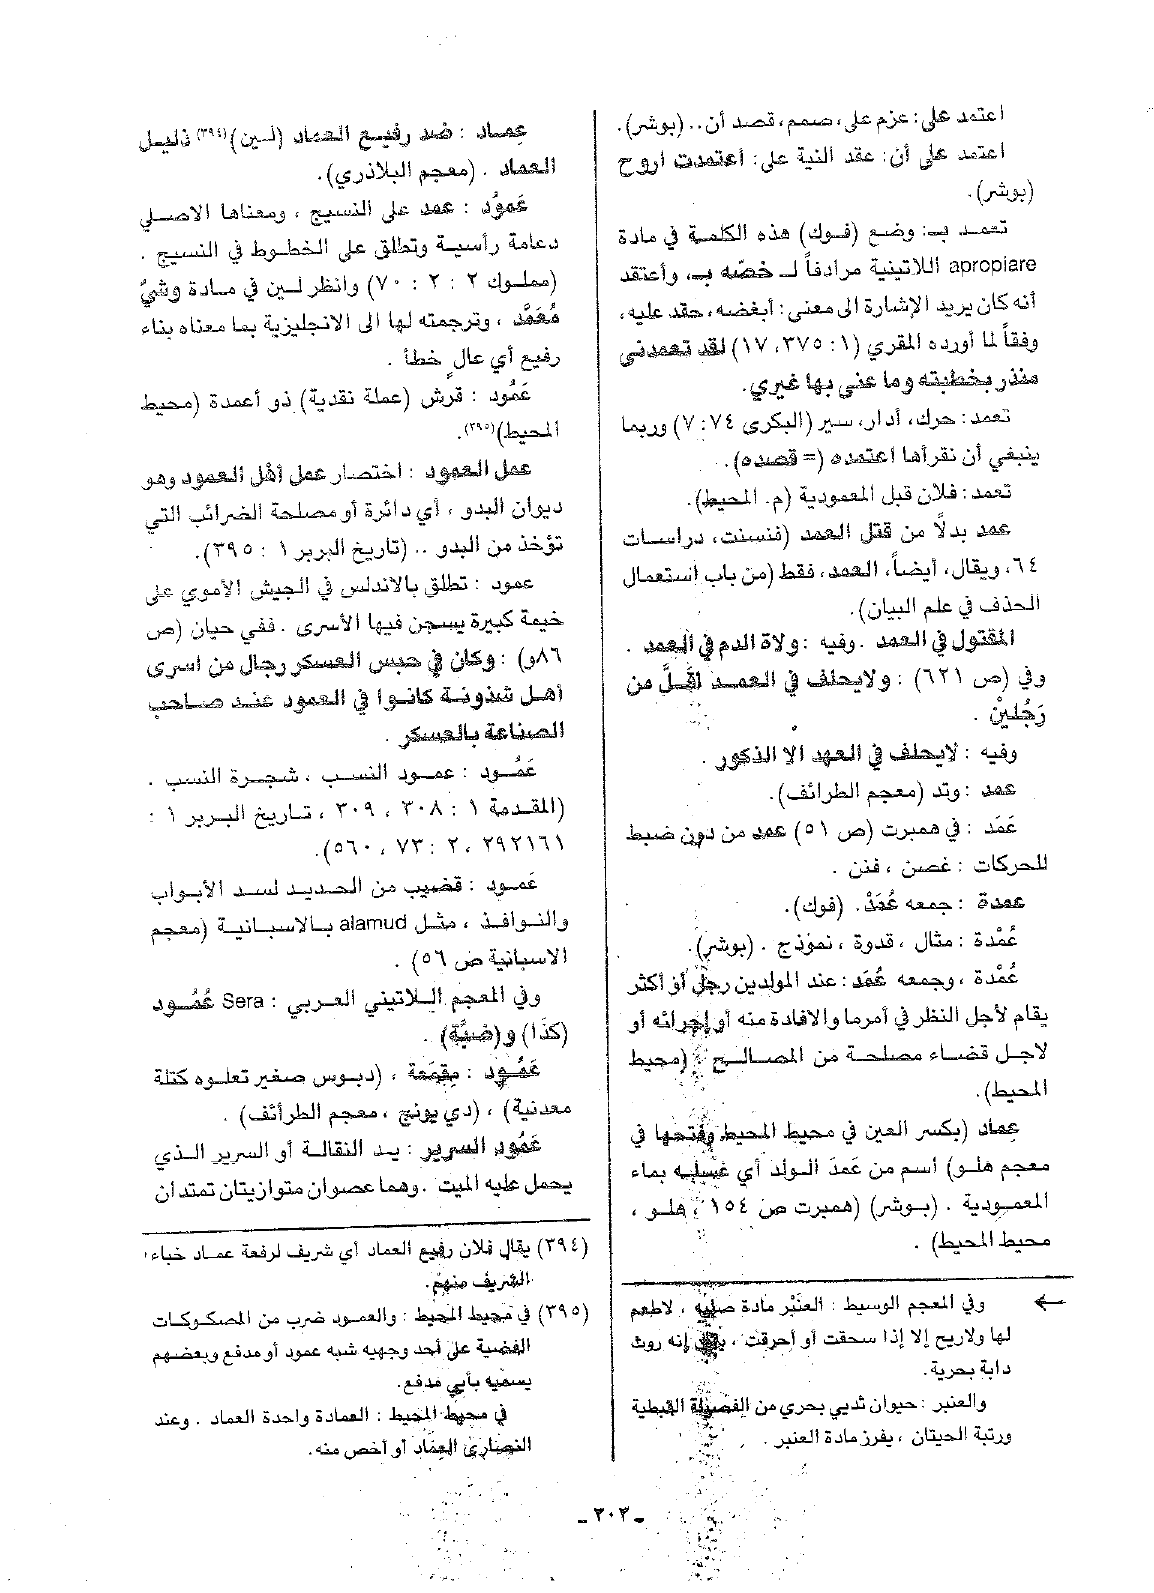 اعتمد على: عزم على، صمم، قصد أن.. (بوشر).
اعتمد على أن: عقد النية على: أعتمدت اروح
(بوشر).
تعمد بـ: وضع (فوك) هذه الكلمة في مادة
apropiare اللاتينية مرادفاً لـ خصّه بـ، وأعتقد
أنه كان يريد الإشارة الى معنى: أبغضه، حقد عليه،
وفقاً لما أورده المقري (١: ٣٧٥، ١٧) لقد تعمدني
منذر بخطبته وما عنى بها غيري.
تعمد: حرك، أدار، سير (البكرى ٧٤: ٧) وربما
ينبغي أن نقرأها اعتمده (= قصده).
تعمد: فلان قبل المعمودية (م. المحيط).
عمد بدلًا من قتل العمد (فنسنت، دراسات
٦٤، ويقال، أيضاً، العمد، فقط (من باب استعمال
الحذف في علم البيان).
المقتول في العمد . وفيه : ولاة الدم في العمد .
وفي (ص ٦٢١) : ولايحلف في العمد اقلَّ من
رَجُلينْ .
وفيه : لايحلف في العهد الا الذكور .
عمد : وتد (معجم الطرائف).
عَمَد : في همبرت (ص ٥١) عمد من دون ضبط
للحركات : غصن ، فنن .
عمدة : جمعه عُمَدْ. (فوك).
عُمْدة : مثال ، قدوة ، نموذج . (بوشر).
عُمْدة ، وجمعه عُمَد : عند المولدين رجل أو أكثر
يقام لأجل النظر في أمرما والافادة منه أو إجرائه أو
لاجل قضاء مصلحة من المصالح (محيط
المحيط).
عِماد (بكسر العين في محيط المحيط وفتحها في
معجم هلو) أسم من عَمدَ الولد أي غسله بماء
المعمودية . (بوشر) (همبرت ص ١٥٤ ، هلو ،
محيط المحيط) .
← وفي المعجم الوسيط : العنْبر مادة صلبة ، لاطعم
لها ولاريح إلا إذا سحقت أو أحرقت ، إنه روث
دابة بحرية.
والعنبر : حيوان ثديي بحري من الفصيلة القيطية
ورتبة الحيتان ، يفرز مادة العنبر .
عِماد : ضد رفيع العماد (لين)(٣٩٤) ذليل
العماد . (معجم البلاذري).
عَمُود : عمد على النسيج ، ومعناها الاصلي
دعامة رأسية وتطلق على الخطوط في النسيج .
(مملوك ٢ : ٢ : ٧٠) وانظر لين في مادة وشيُ
مُعَمَّد ، وترجمته لها الى الانجليزية بما معناه بناء
رفيع أي عالٍ خطأ .
عَمُود : قرش (عملة نقدية) ذو أعمدة (محيط
المحيط)(٣٩٥).
عمل العمود : اختصار عمل أهْل العمود وهو
ديوان البدو ، أي دائرة أو مصلحة الضرائب التي
تؤخذ من البدو .. (تاريخ البربر ١ : ٣٩٥).
عمود : تطلق بالاندلس في الجيش الأموي على
خيمة كبيرة يسجن فيها الأسرى . ففي حيان (ص
٨٦و) : وكان في حبس العسكر رجال من اسرى
أهل شذونة كانوا في العمود عند صاحب
الصناعة بالعسكر .
عَمُود : عمود النسب ، شجرة النسب .
(المقدمة ١ : ٣٠٨ ، ٣٠٩ ، تاريخ البربر ١ :
٢٩٢١٦١ ، ٢ : ٧٣ ، ٥٦٠).
عَمود : قضيب من الحديد لسد الأبواب
والنوافذ ، مثل alamud بالاسبانية (معجم
الاسبانية ص ٥٦) .
وفي المعجم اللاتيني العربي : Sera عُمُود
(كذا) و(ضبَّة) .
عَمُود : مِقمَعة ، (دبوس صغير تعلوه كتلة
معدنية) ، (دي يونج ، معجم الطرأئف) .
عَمُود السرير : يد النقالة أو السرير الذي
يحمل عليه الميت . وهما عصوان متوازيتان تمتدان
(٣٩٤) يقال فلان رفيع العماد أي شريف لرفعة عماد خباء
الشريف منهم.
(٣٩٥) في محيط المحيط : والعمود ضرب من المصكوكات
الفضية على أحد وجهيه شبه عمود أو مدفع وبعضهم
يسميه بأبي مدفع.
في محيط المحيط : العمادة واحدة العماد . وعند
النصارى العِماد أو أخص منه.
ـ ٣٠٣ ـ